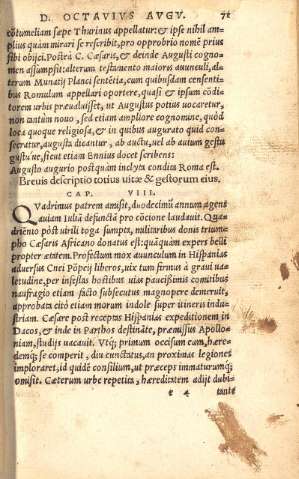 D. OCTAVIVS AVGV. 71
cōtumeliam sæpe Thurinus appellatur: & ipse nihil am-
plius quàm mirari se rescribit, pro opprobrio nomē prius
sibi obijci. Postea C. Cæsaris, & deinde Augusti cogno-
men assumpsit: alterum testamento maioris auunculi, al-
terum Munatij Planci sentētia, cum quibusdam censenti-
bus Romulum appellari oportere, quasi & ipsum cōdi-
torem vrbis præualuisset, ut Augustus potius uocaretur,
non tantùm nouo, sed etiam ampliore cognomine, quòd
loca quoque religiosa, & in quibus augurato quid con-
secratur, augusta dicantur, ab auctu, uel ab auium gestu
gustu'ue, sicut etiam Ennius docet scribens:
Augusto augurio postquàm inclyta condita Roma est.
Breuis descriptio totius uitæ & gestorum eius.
CAP. VIII.
QVadrimus patrem amisit, duodecimū annum agens
auiam Iuliā defunctā pro cōcione laudauit. Qua-
driēnio pòst uirili toga sumpta, militaribus donis trium-
pho Cæsaris Africano donatus est: quāquàm expers belli
propter ætatem. Profectum mox auunculum in Hispanias
aduersus Cnei Pōpeij liberos, uix tum firmus à graui ua-
letudine, per infestas hostibus uias paucissimis comitibus
naufragio etiam facto subsecutus magnopere demeruit,
approbata citò etiam morum indole super itineris indu-
striam. Cæsare pòst receptas Hispanias expeditionem in
Dacos, & inde in Parthos destināte, præmissus Apollo-
niam, studijs uacauit. Vtq; primum occisum eum, hære-
demq; se comperit, diu cunctatus, an proximas legiones
imploraret, id quidē consilium, ut præceps immaturumq;
omisit. Cæterum urbe repetita, hæreditatem adijt dubi-
e 4 tante